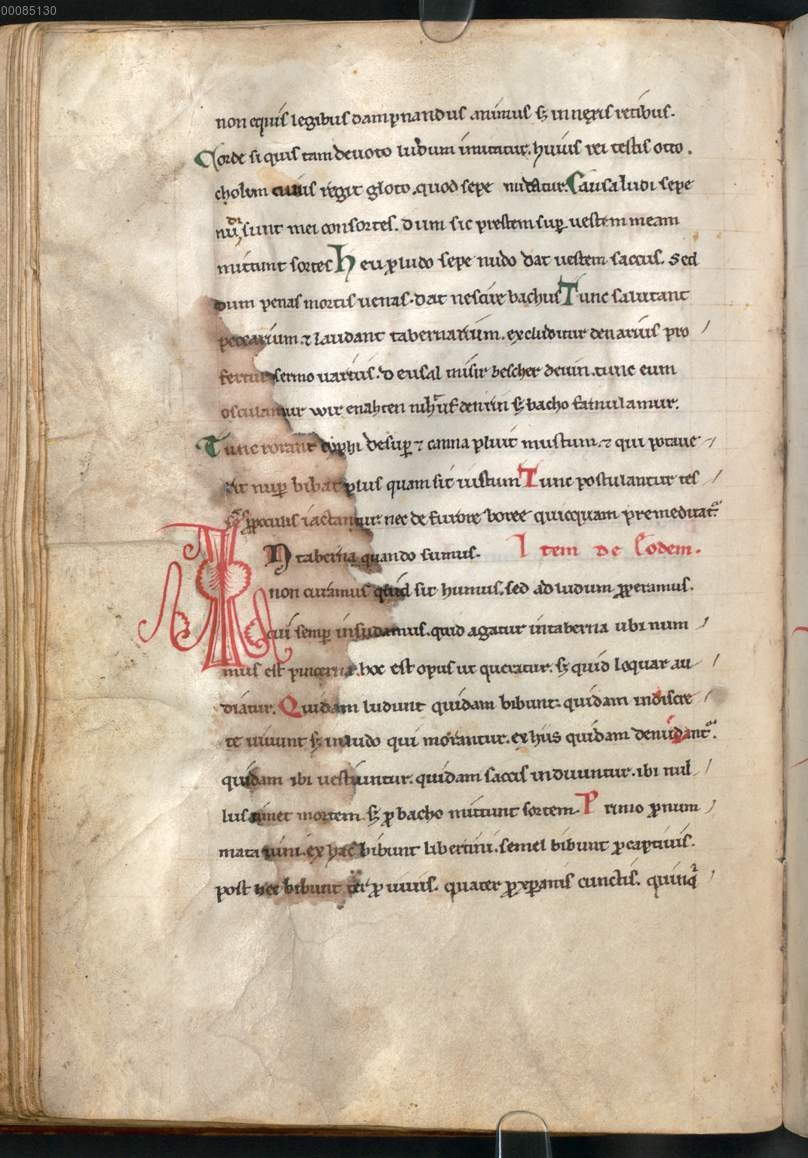 00085130
non equis legibus dampnandus animus sꝫ innexis retibus.
Corde si quis tam deuoto ludum imitatur. huius rei testis otto.
cholum cuius regit gloto. quod sepe nudatur. Causa ludi sepe
nudi sunt mei consortes. dum sic prestem sup̱ uestem meam
mittunt sortes Heu ꝑ ludo sepe nudo dat uestem saccus. Sed
dum penas mortis uenas. dat nescire bachus Tunc salutant
peccarium. ⁊ laudant tabernarium. excluditur denarius pro
fertur sermo uarius. Deu sal misir bescher de uin. tunc eum
osculamur wir enahten niht uf den rin sꝫ bacho famulamur.
Tunc rorant cyphi desup̱ ⁊ canna pluit mustum. ⁊ qui potaue
rit nup̱ bibat plus quam sit iustum Tunc postulantur tes
iactantur nec de furore boree quicquam premeditat᷑
In taberna quando sumus. Item de Eodem.
non curamus quid sit humus. sed ad ludum ꝓperamus.
cui semp̱ insudamus. quid agatur in taberna ubi num
mus est pincerna. hoc est opus ut queratur. sꝫ quid loquar au
diatur. Quidam ludunt quidam bibunt. quidam indiscre
te uiuunt sꝫ in ludo qui morantur. ex hiis quidam denudant᷑.
quidam ibi uestiuntur. quidam saccis induuntur. ibi nul
lus timet mortem. sꝫ ꝓ bacho mittunt sortem. Primo ꝓ num
mata uini. ex hac bibunt libertini. semel bibunt ꝓ captiuis.
post hec bibunt ter ꝓ uiuis. quater ꝓ xp̄ianis cunctis. quinq̄